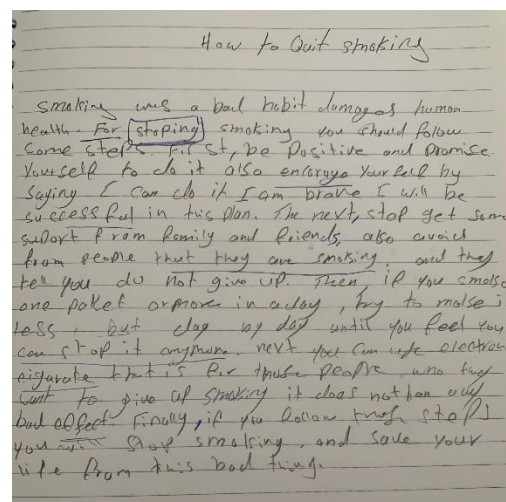 How to Quit smoking
smoking was a bad habit damages human
health. For stoping smoking you should follow
some steps. First, be Positive and Promise
Yourself to do it also encorage Yourself by
saying I can do it I am brave I will be
successful in this plan. The next, stop get some
suport from family and friends, also avoid
from people that they are smoking, and they
tell you do not give up. Then, if you smoke
one paket or more in a day, try to make i
Less, but day by day until you feel you
can stop it anymore. next you can use electron
cigarate that is for those people who they
want to give up smoking it does not han any
bad effect. Finally, if you follow these steps
you will stop smoking, and save your
life from this bad thing.